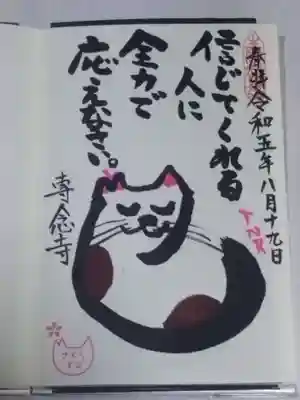 奉拝 令和五年八月十九日
信じてくれる
人に
全力で
応えなさい。
専念寺